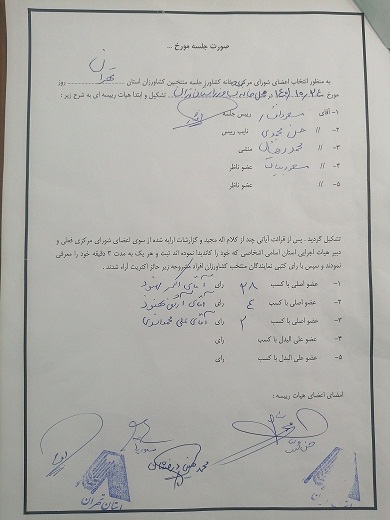 صورت جلسه مورخ ...
به منظور انتخاب اعضای شورای مرکزی خانه کشاورز جلسه منتخبین کشاورزان استان تهران روز
مورخ تشکیل و ابتدا هیات رییسه ای به شرح زیر :
۱- آقای مسعود رییس جلسه
۲- // حسن محمدی نایب رییس
۳- // محمد منشی
۴- // مسعود عضو ناظر
۵- // عضو ناظر
تشکیل گردید . پس از قرائت آیاتی چند از کلام اله مجید و گزارشات ارایه شده از سوی اعضای شورای مرکزی فعلی و
دبیر هیات اجرایی استان اسامی اشخاصی که خود را کاندیدا نموده اند ثبت و هر یک به مدت ۳ دقیقه خود را معرفی
نمودند و سپس با رای کتبی نمایندگان منتخب کشاورزان افراد مشروحه زیر حائز اکثریت آراء شدند .
۱- عضو اصلی با کسب ۲۸ رای آقای اکبر بهنود
۲- عضو اصلی با کسب ۴ رای آقای بهنود
۳- عضو اصلی با کسب ۲ رای آقای علی
۴- عضو علی البدل با کسب رای
۵- عضو علی البدل با کسب رای
امضای اعضای هیات رییسه :
استان تهران